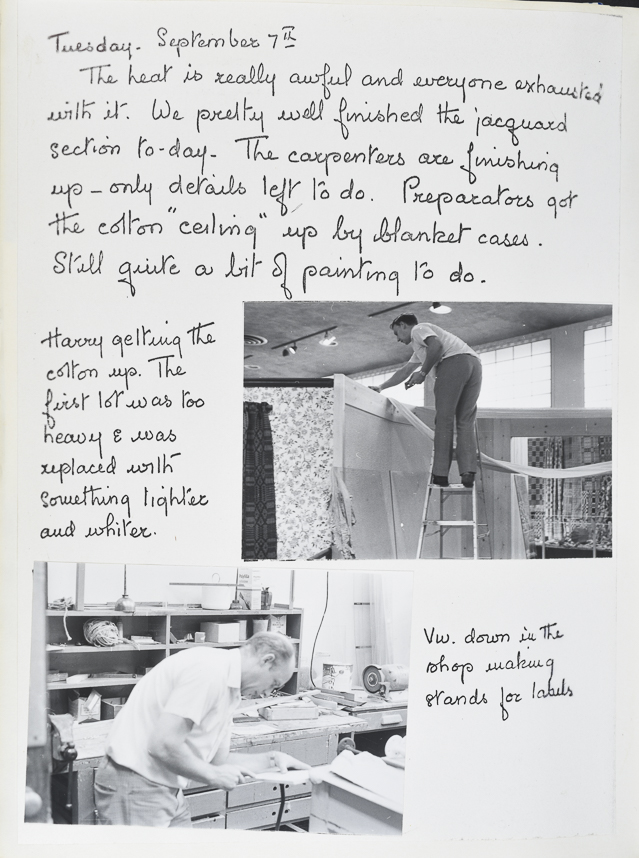 Tuesday. September 7th
The heat is really awful and everyone exhausted
with it. We pretty well finished the jacquard
section to-day. The carpenters are finishing
up - only details left to do. Preparators got
the cotton "ceiling" up by blanket cases.
Still quite a bit of painting to do.
Harry getting the
cotton up. The
first lot was too
heavy & was
replaced with
something lighter
and whiter.
Vw. down in the
shop making
stands for labels